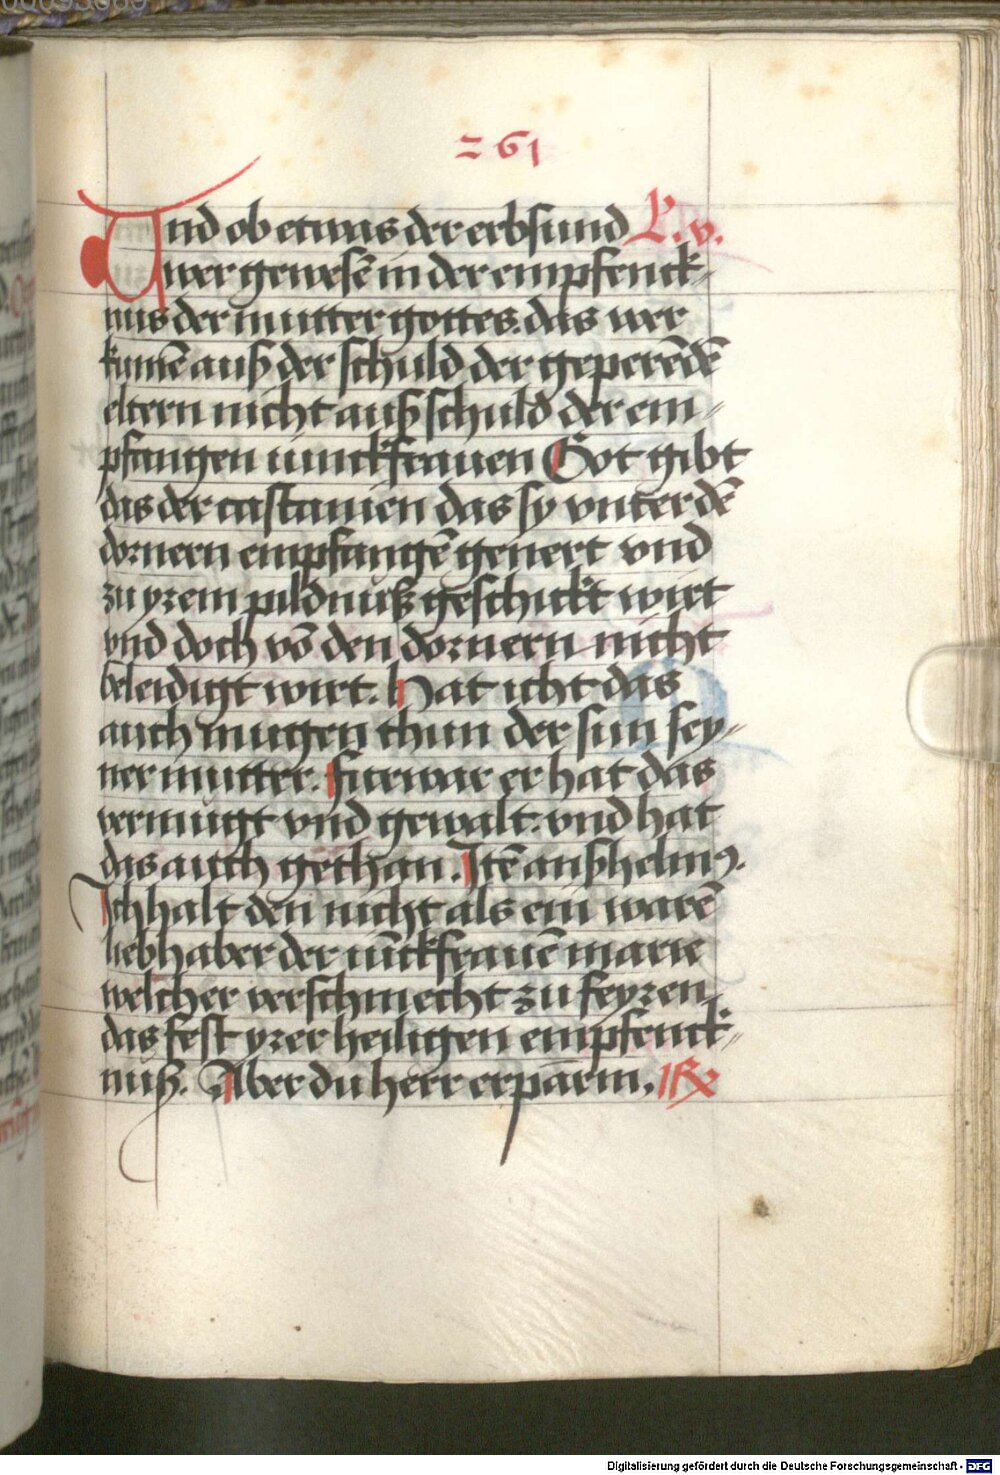 261
Und ob etwas der erbsund L. v.
wer gewesē in der empfenck-
nus der mutter gottes. das wer
kumē auß der schuld der geperēdē
eltern nicht auß schuld der em-
pfangen iunckfrauen Got gibt
das der castanien das sy vnter dē
dornern empfangē genert vnd
zu yrem pildnuß geschickt wirt
vnd doch vō den dornern nicht
beleidigt wirt. hat icht das
auch mugen thun der sun sey-
ner mutter. furwar er hat das
vermugt vnd gewalt. vnd hat
das auch gethan. Itē anßhelmꝰ.
Ich halt den nicht als ein warē
liebhaber der iūckfrauē marie
welcher verschmecht zu feyren
das fest yrer heiligen empfenck-
nuß. Aber du herr erparm.
Digitalisierung gefördert durch die Deutsche Forschungsgemeinschaft - DFG